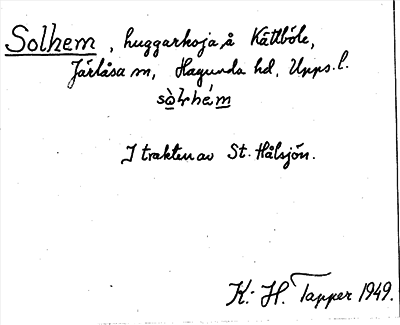 Solhem, huggarkoja å Kättböle,
Järlåsa sn, Hagunda hd, Upps. l.
sòlhém
I trakten av St. Hålsjön.
K.-H. Tapper 1949.